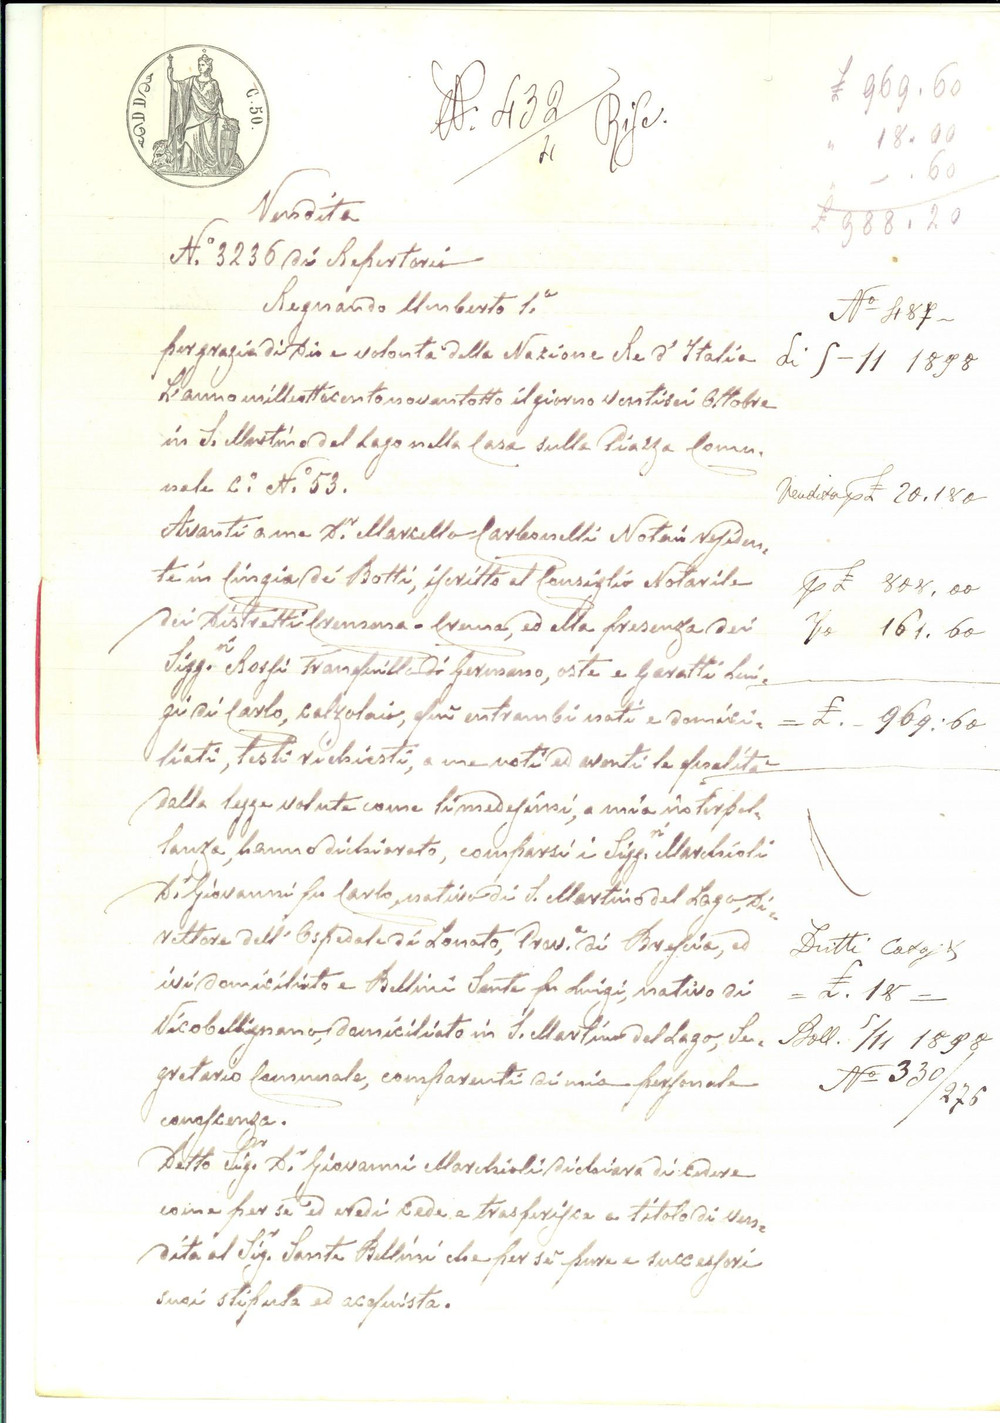 C. 50.
N. 432/4 Risc.
£ 969.60
" 18.00
" - .60
£ 988.20
Vendita
N.° 3236 di Repertorio
Regnando Umberto 1.°
per grazia di Dio e volontà della Nazione Re d'Italia
L'anno milleottocentonovantotto il giorno ventisei Ottobre
in S. Martino del Lago nella Casa sulla Piazza Comu-
nale C.° N.° 53.
Avanti a me D.r Marcello Carbonelli Notaio residen-
te in Cingia de' Botti, iscritto al Consiglio Notarile
dei Distretti Cremona-Crema, ed alla presenza dei
Sigg.ri Rossi Tranquillo di Germano, oste e Garatti Lui-
gi di Carlo, calzolaio, qui entrambi nati e domici-
liati, testi richiesti, a me noti ed aventi le qualità
dalla legge volute come li medesimi, a mia interpel-
lanza, hanno dichiarato, comparsi i Sigg.ri Marchioli
D.r Giovanni fu Carlo, nativo di S. Martino del Lago, Di-
rettore dell'Ospedale di Lonato, Prov.a di Brescia, ed
ivi domiciliato e Bellini Sante fu Luigi, nativo di
Vicobellignano, domiciliato in S. Martino del Lago, Se-
gretario Comunale, comparenti di mia personale
conoscenza.
Detto Sig.r D.r Giovanni Marchioli dichiara di cedere
come per sè ed eredi cede e trasferisce a titolo di ven-
dita al Sig.r Sante Bellini che per sè pure e successori
suoi stipula ed acquista.
N.° 487
Li 5-11 1898
Vendita p £ 20.180
p £ 808.00
161.60
= £. - 969.60
= £. 18 =
Boll. 5/11 1898
N.° 330/276